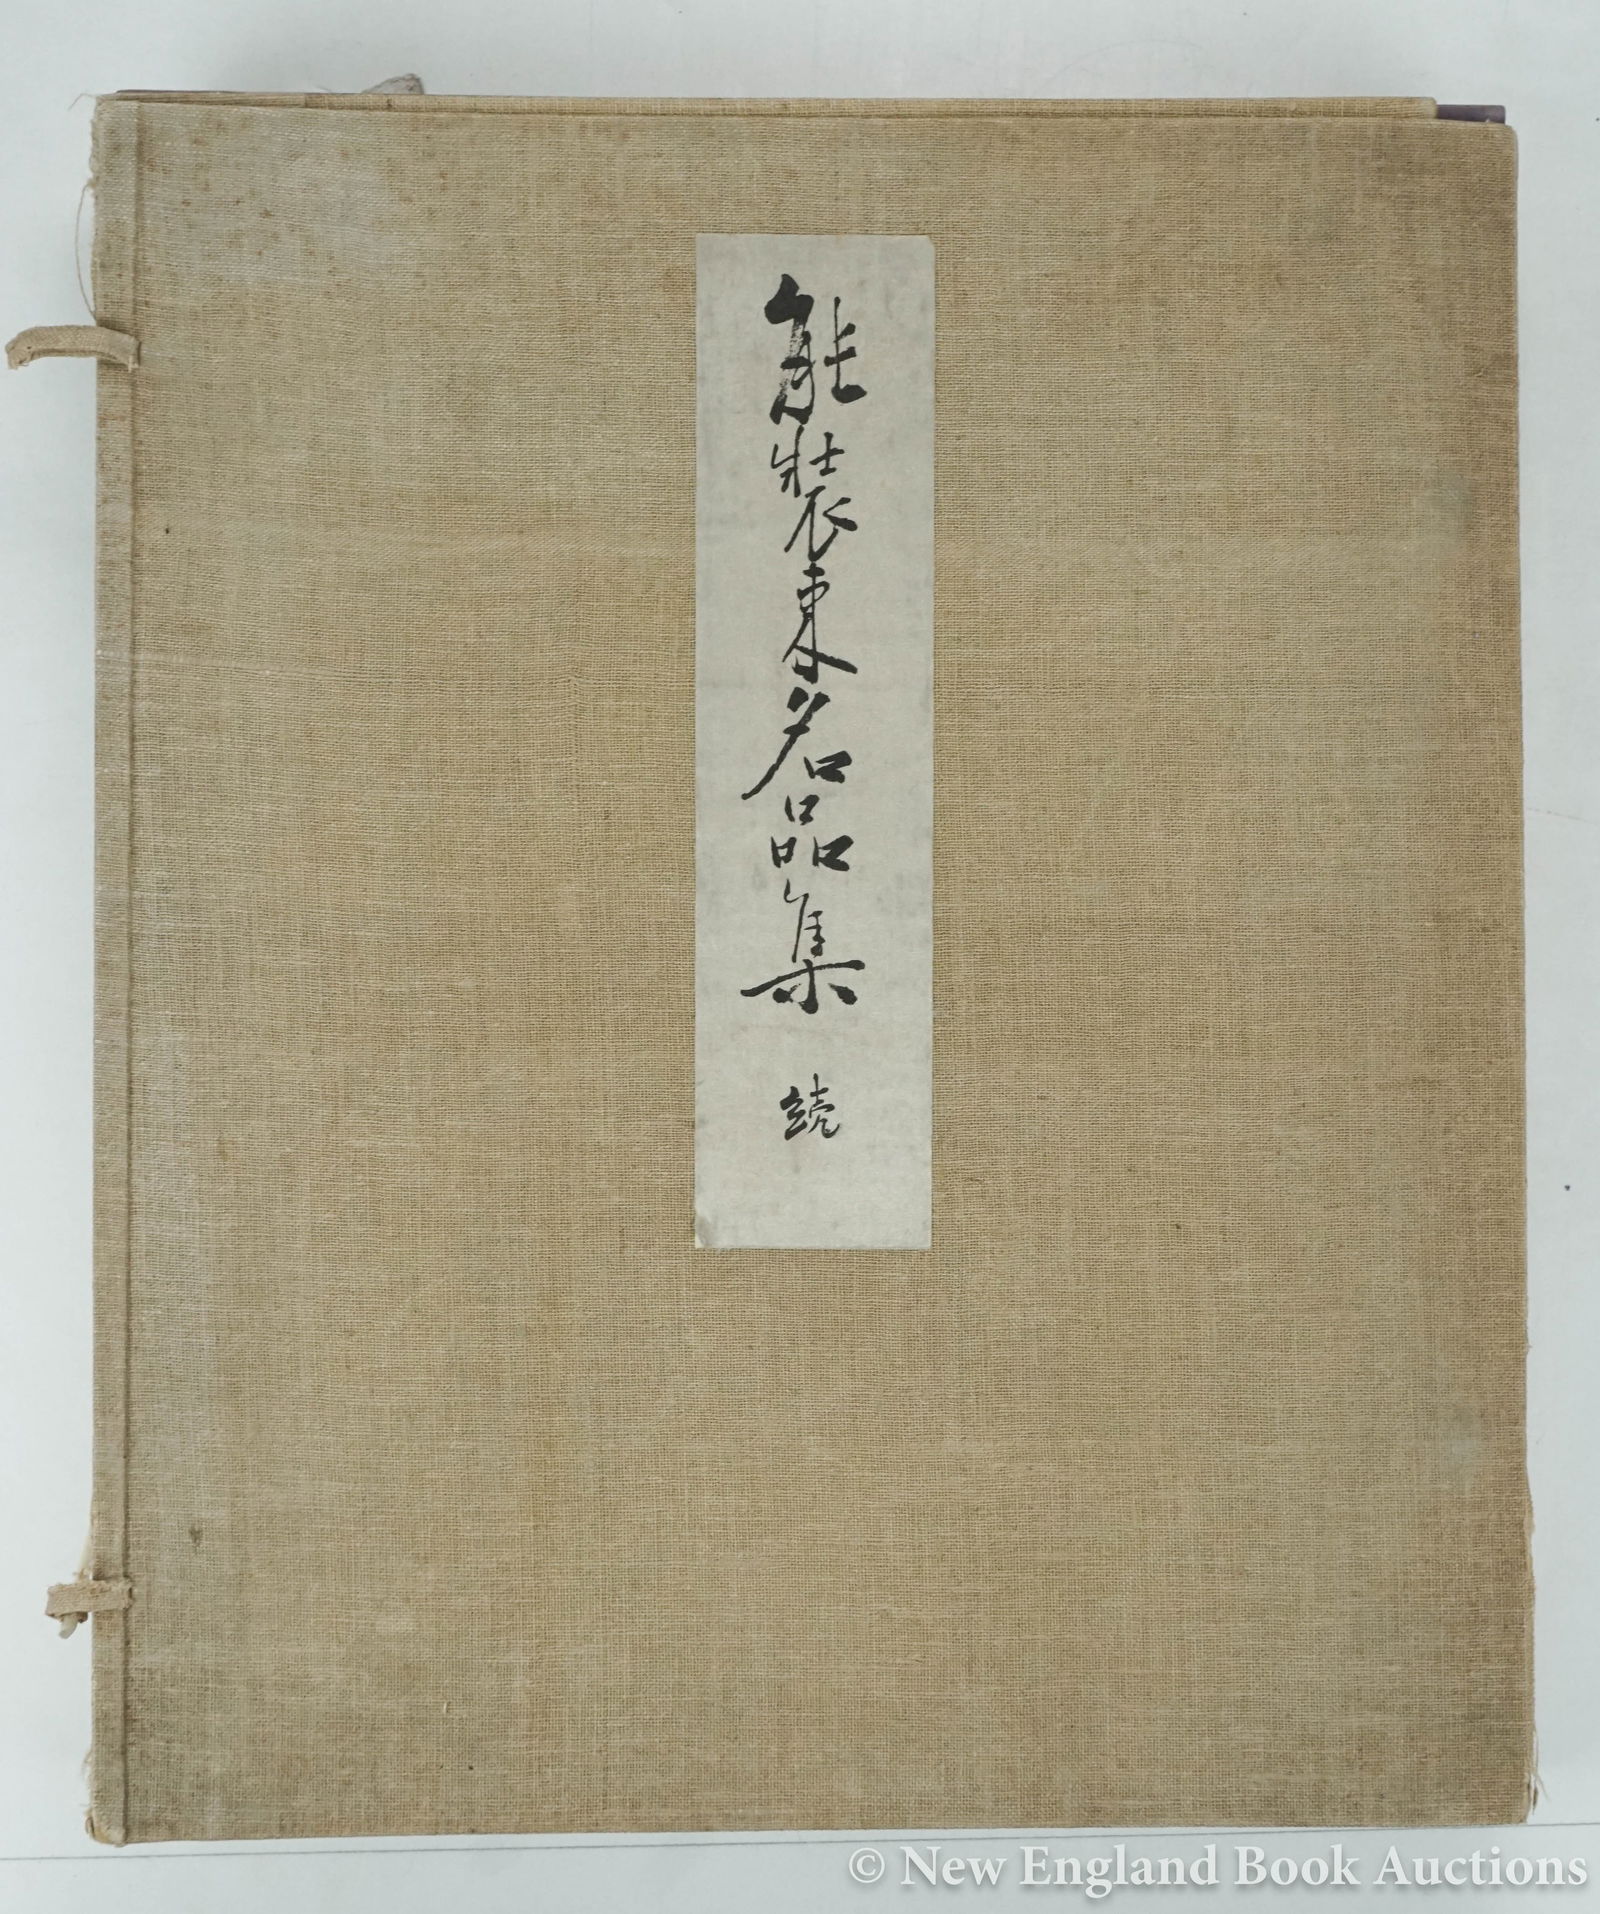 能装束名品集 続
© New England Book Auctions